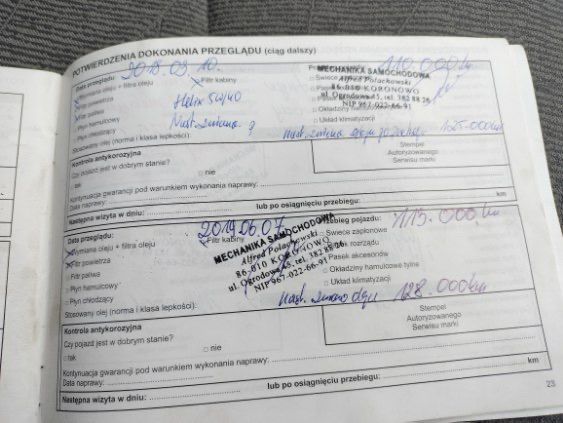 POTWIERDZENIA DOKONANIA PRZEGLĄDU (ciąg dalszy)
Data przeglądu: 2018.09.10. 110.000km
Wymiana oleju + filtra oleju Filtr kabiny Świece
Filtr powietrza
Filtr paliwa Helix 5W/40
Płyn hamulcowy Okładziny
Płyn chłodzący Nast. zmiana Układ klimatyzacji
MECHANIKA SAMOCHODOWA
Alfred Polachowski
86-010 KORONOWO
ul. Ogrodowa 45, tel. 382 88 26
NIP 967-022-66-91
Stosowany olej (norma i klasa lepkości): nast. zmiana oleju 125.000km
Kontrola antykorozyjna
Czy pojazd jest w dobrym stanie?
tak nie
Stempel
Autoryzowanego
Serwisu marki
Kontynuacja gwarancji pod warunkiem wykonania naprawy:
Data naprawy:
Następna wizyta w dniu: lub po osiągnięciu przebiegu: km
Data przeglądu: 2019.06.07 Przebieg pojazdu: 113.000km
Wymiana oleju + filtra oleju Filtr kabiny Świece zapłonowe
Filtr powietrza rozrządu
Filtr paliwa Pasek akcesoriów
Płyn hamulcowy Okładziny hamulcowe tylne
Płyn chłodzący Układ klimatyzacji
MECHANIKA SAMOCHODOWA
Alfred Polachowski
86-010 KORONOWO
ul. Ogrodowa 45, tel. 382 88 26
NIP 967-022-66-91
Stosowany olej (norma i klasa lepkości): Nast. zmiana oleju 128.000km
Kontrola antykorozyjna
Czy pojazd jest w dobrym stanie?
tak nie
Stempel
Autoryzowanego
Serwisu marki
Kontynuacja gwarancji pod warunkiem wykonania naprawy:
Data naprawy:
Następna wizyta w dniu: lub po osiągnięciu przebiegu: km
23